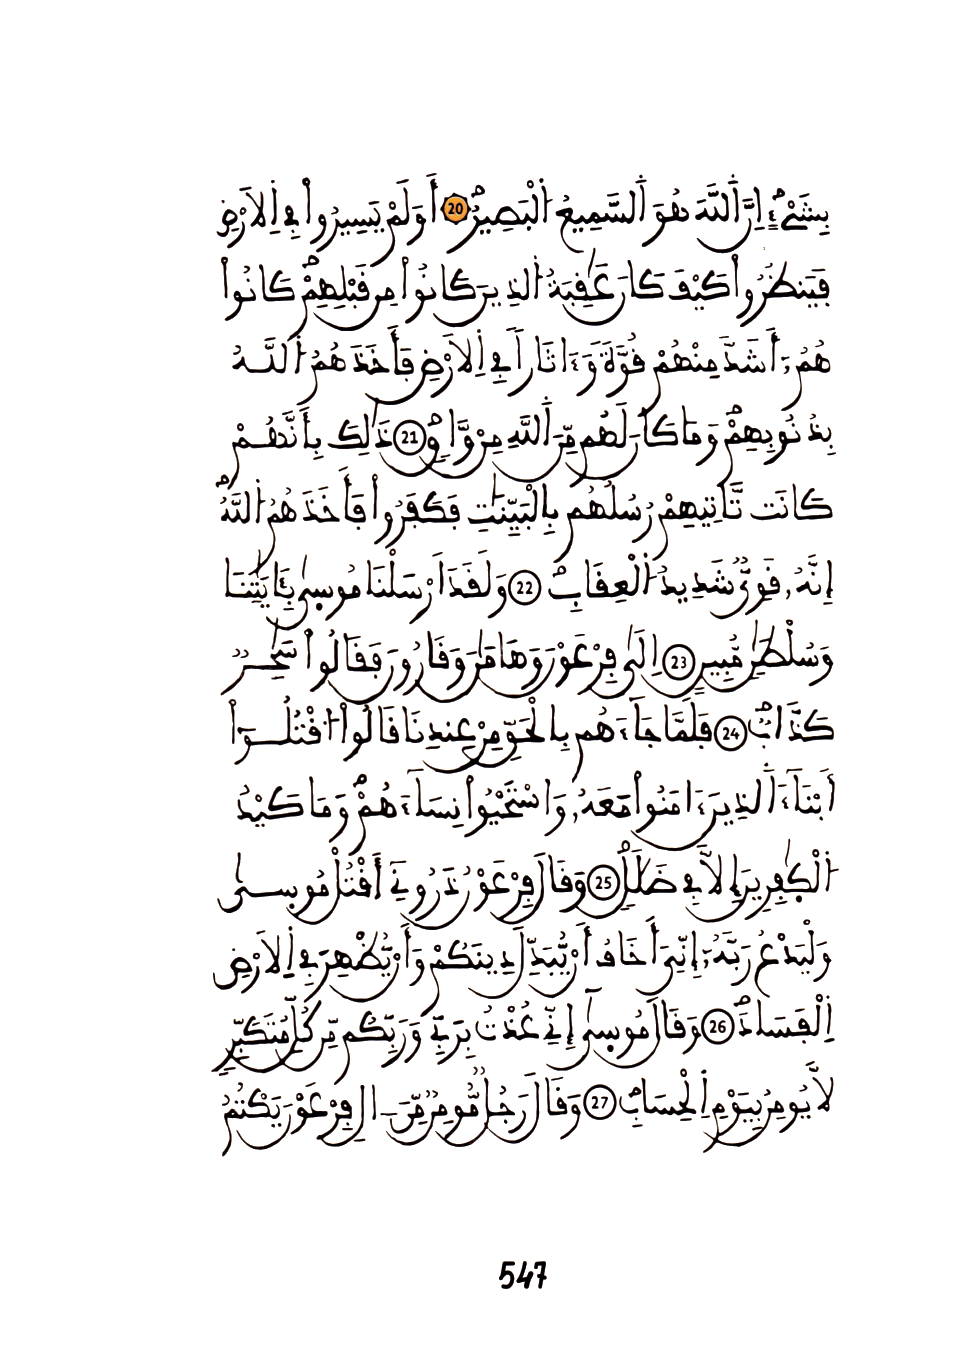 بِشَےْءٍۖ اِنَّ اَللَّهَ هُوَ اَلسَّمِيعُ اُلْبَصِيرُۖ 20 أَوَلَمْ يَسِيرُواْ فِے اِلَارْضِ
فَيَنظُرُواْ كَيْفَ كَانَ عَٰقِبَةُ اُلذِينَ كَانُواْ مِن قَبْلِهِمْۖ كَانُواْ
هُمُۥٓ أَشَدَّ مِنْهُمْ قُوَّةٗ وَءَاثَاراٗ فِے اِلَارْضِ فَأَخَذَهُمُ اُللَّهُ
بِذُنُوبِهِمْۖ وَمَا كَانَ لَهُم مِّنَ اَللَّهِ مِنْ وَّاقٖۖ 21 ذَٰلِكَ بِأَنَّهُمْ
كَانَت تَّاتِيهِمْ رُسُلُهُم بِالْبَيِّنَٰتِ فَكَفَرُواْ فَأَخَذَهُمُ اُللَّهُۖ
إِنَّهُۥ قَوِيّٞ شَدِيدُ اُلْعِقَابِۖ 22 وَلَقَدَ اَرْسَلْنَا مُوسۭيٰ بِـَٔايَٰتِنَا
وَسُلْطَٰنٖ مُّبِينٍ 23 اِلَيٰ فِرْعَوْنَ وَهَٰمَٰنَ وَقَٰرُونَ فَقَالُواْ سَٰحِرٞ
كَذَّابٞۖ 24 فَلَمَّا جَآءَهُم بِالْحَقِّ مِنْ عِندِنَا قَالُواْ اُ۟قْتُلُوٓاْ
أَبْنَآءَ اَلذِينَ ءَامَنُواْ مَعَهُۥ وَاسْتَحْيُواْ نِسَآءَهُمْۖ وَمَا كَيْدُ
اُلْكٰ۪فِرِينَ إِلَّا فِے ضَلَٰلٖۖ 25 وَقَالَ فِرْعَوْنُ ذَرُونِےٓ أَقْتُلْ مُوسۭيٰ
وَلْيَدْعُ رَبَّهُۥٓۖ إِنِّيَ أَخَافُ أَنْ يُّبَدِّلَ دِينَكُمْ وَأَنْ يُّظْهِرَ فِے اِلَارْضِ
اِلْفَسَادَۖ 26 وَقَالَ مُوسۭيٰٓ إِنِّے عُذْتُ بِرَبِّے وَرَبِّكُم مِّن كُلِّ مُتَكَبِّرٖ
لَّا يُومِنُ بِيَوْمِ اِلْحِسَابِۖ 27 وَقَالَ رَجُلٞ مُّومِنٞ مِّنَ اٰلِ فِرْعَوْنَ يَكْتُمُ
547